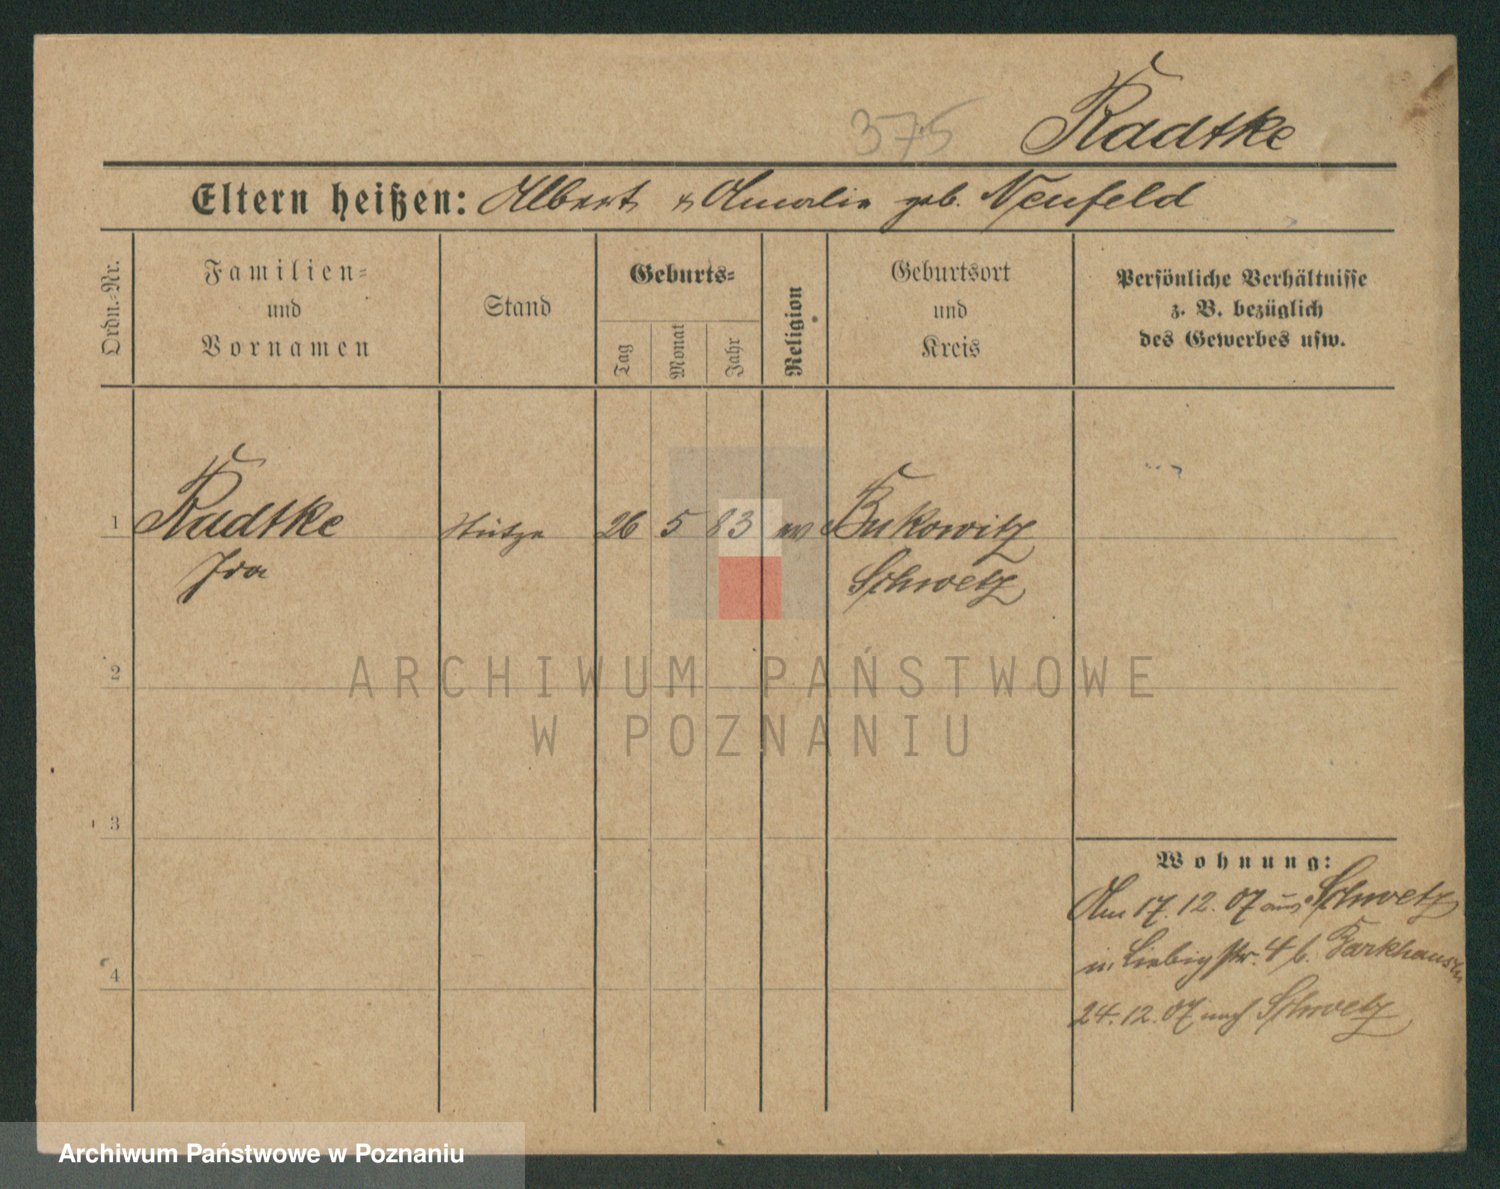 375 Radtke
Eltern heißen: Albert & Amalie geb. Neufeld
Ordn.=Nr.
Familien=
und
Vornamen
Stand
Geburts=
Tag
Monat
Jahr
Religion
Geburtsort
und
Kreis
Persönliche Verhältnisse
z. B. bezüglich
des Gewerbes usw.
1 Radtke Stütze 26 5 83 ev Bukowitz
Ida Schwetz
2
3
4
Wohnung:
Am 17.12.07 aus Schwetz
in Liebigstr. 4 b. Barkhausen
24.12.07 nach Schwetz
ARCHIWUM PAŃSTWOWE
W POZNANIU
Archiwum Państwowe w Poznaniu